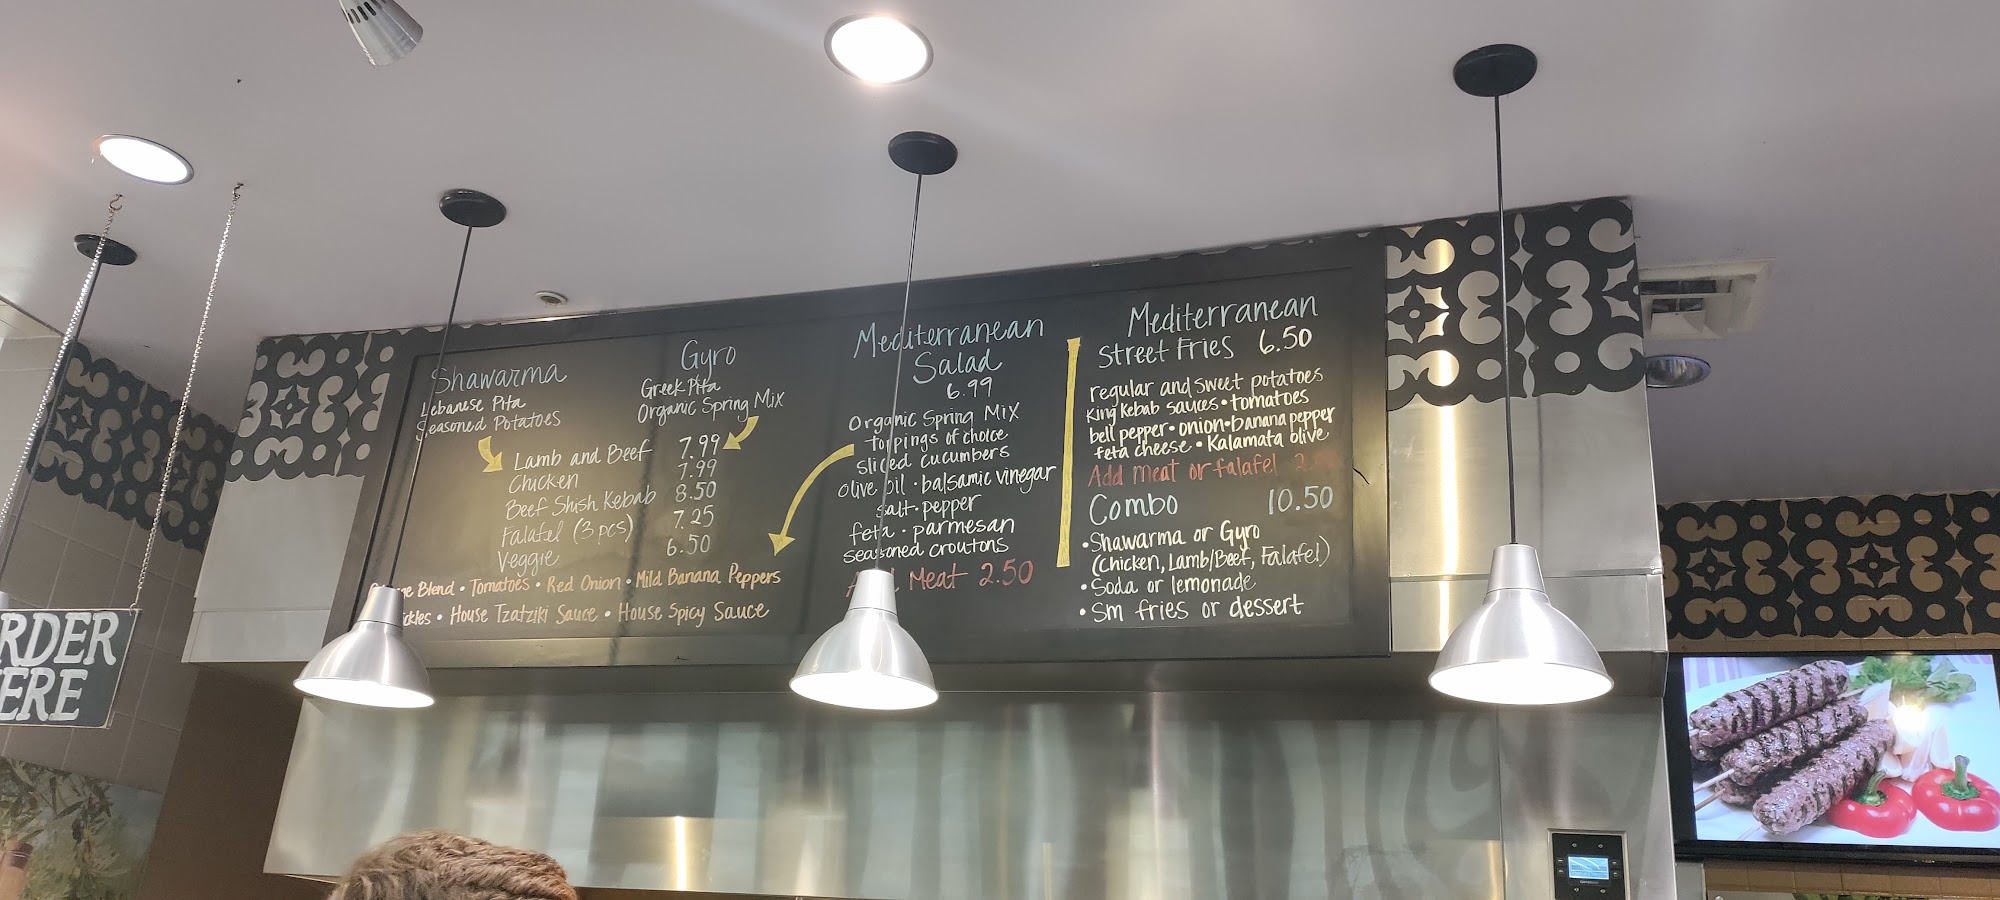 Shawarma
Lebanese Pita
Seasoned Potatoes
Gyro
Greek Pita
Organic Spring Mix
Lamb and Beef 7.99
Chicken 7.99
Beef Shish Kebab 8.50
Falafel (3 pcs) 7.25
Veggie 6.50
Blend • Tomatoes • Red Onion • Mild Banana Peppers
• House Tzatziki Sauce • House Spicy Sauce
Mediterranean
Salad
6.99
Organic Spring Mix
toppings of choice
sliced cucumbers
olive oil • balsamic vinegar
salt • pepper
feta • parmesan
seasoned croutons
Meat 2.50
Mediterranean
Street Fries 6.50
regular and sweet potatoes
King Kebab sauces • tomatoes
bell pepper • onion • banana pepper
feta cheese • Kalamata olive
Add meat or falafel
Combo 10.50
• Shawarma or Gyro
(Chicken, Lamb/Beef, Falafel)
• Soda or lemonade
• Sm fries or dessert
RDER
ERE